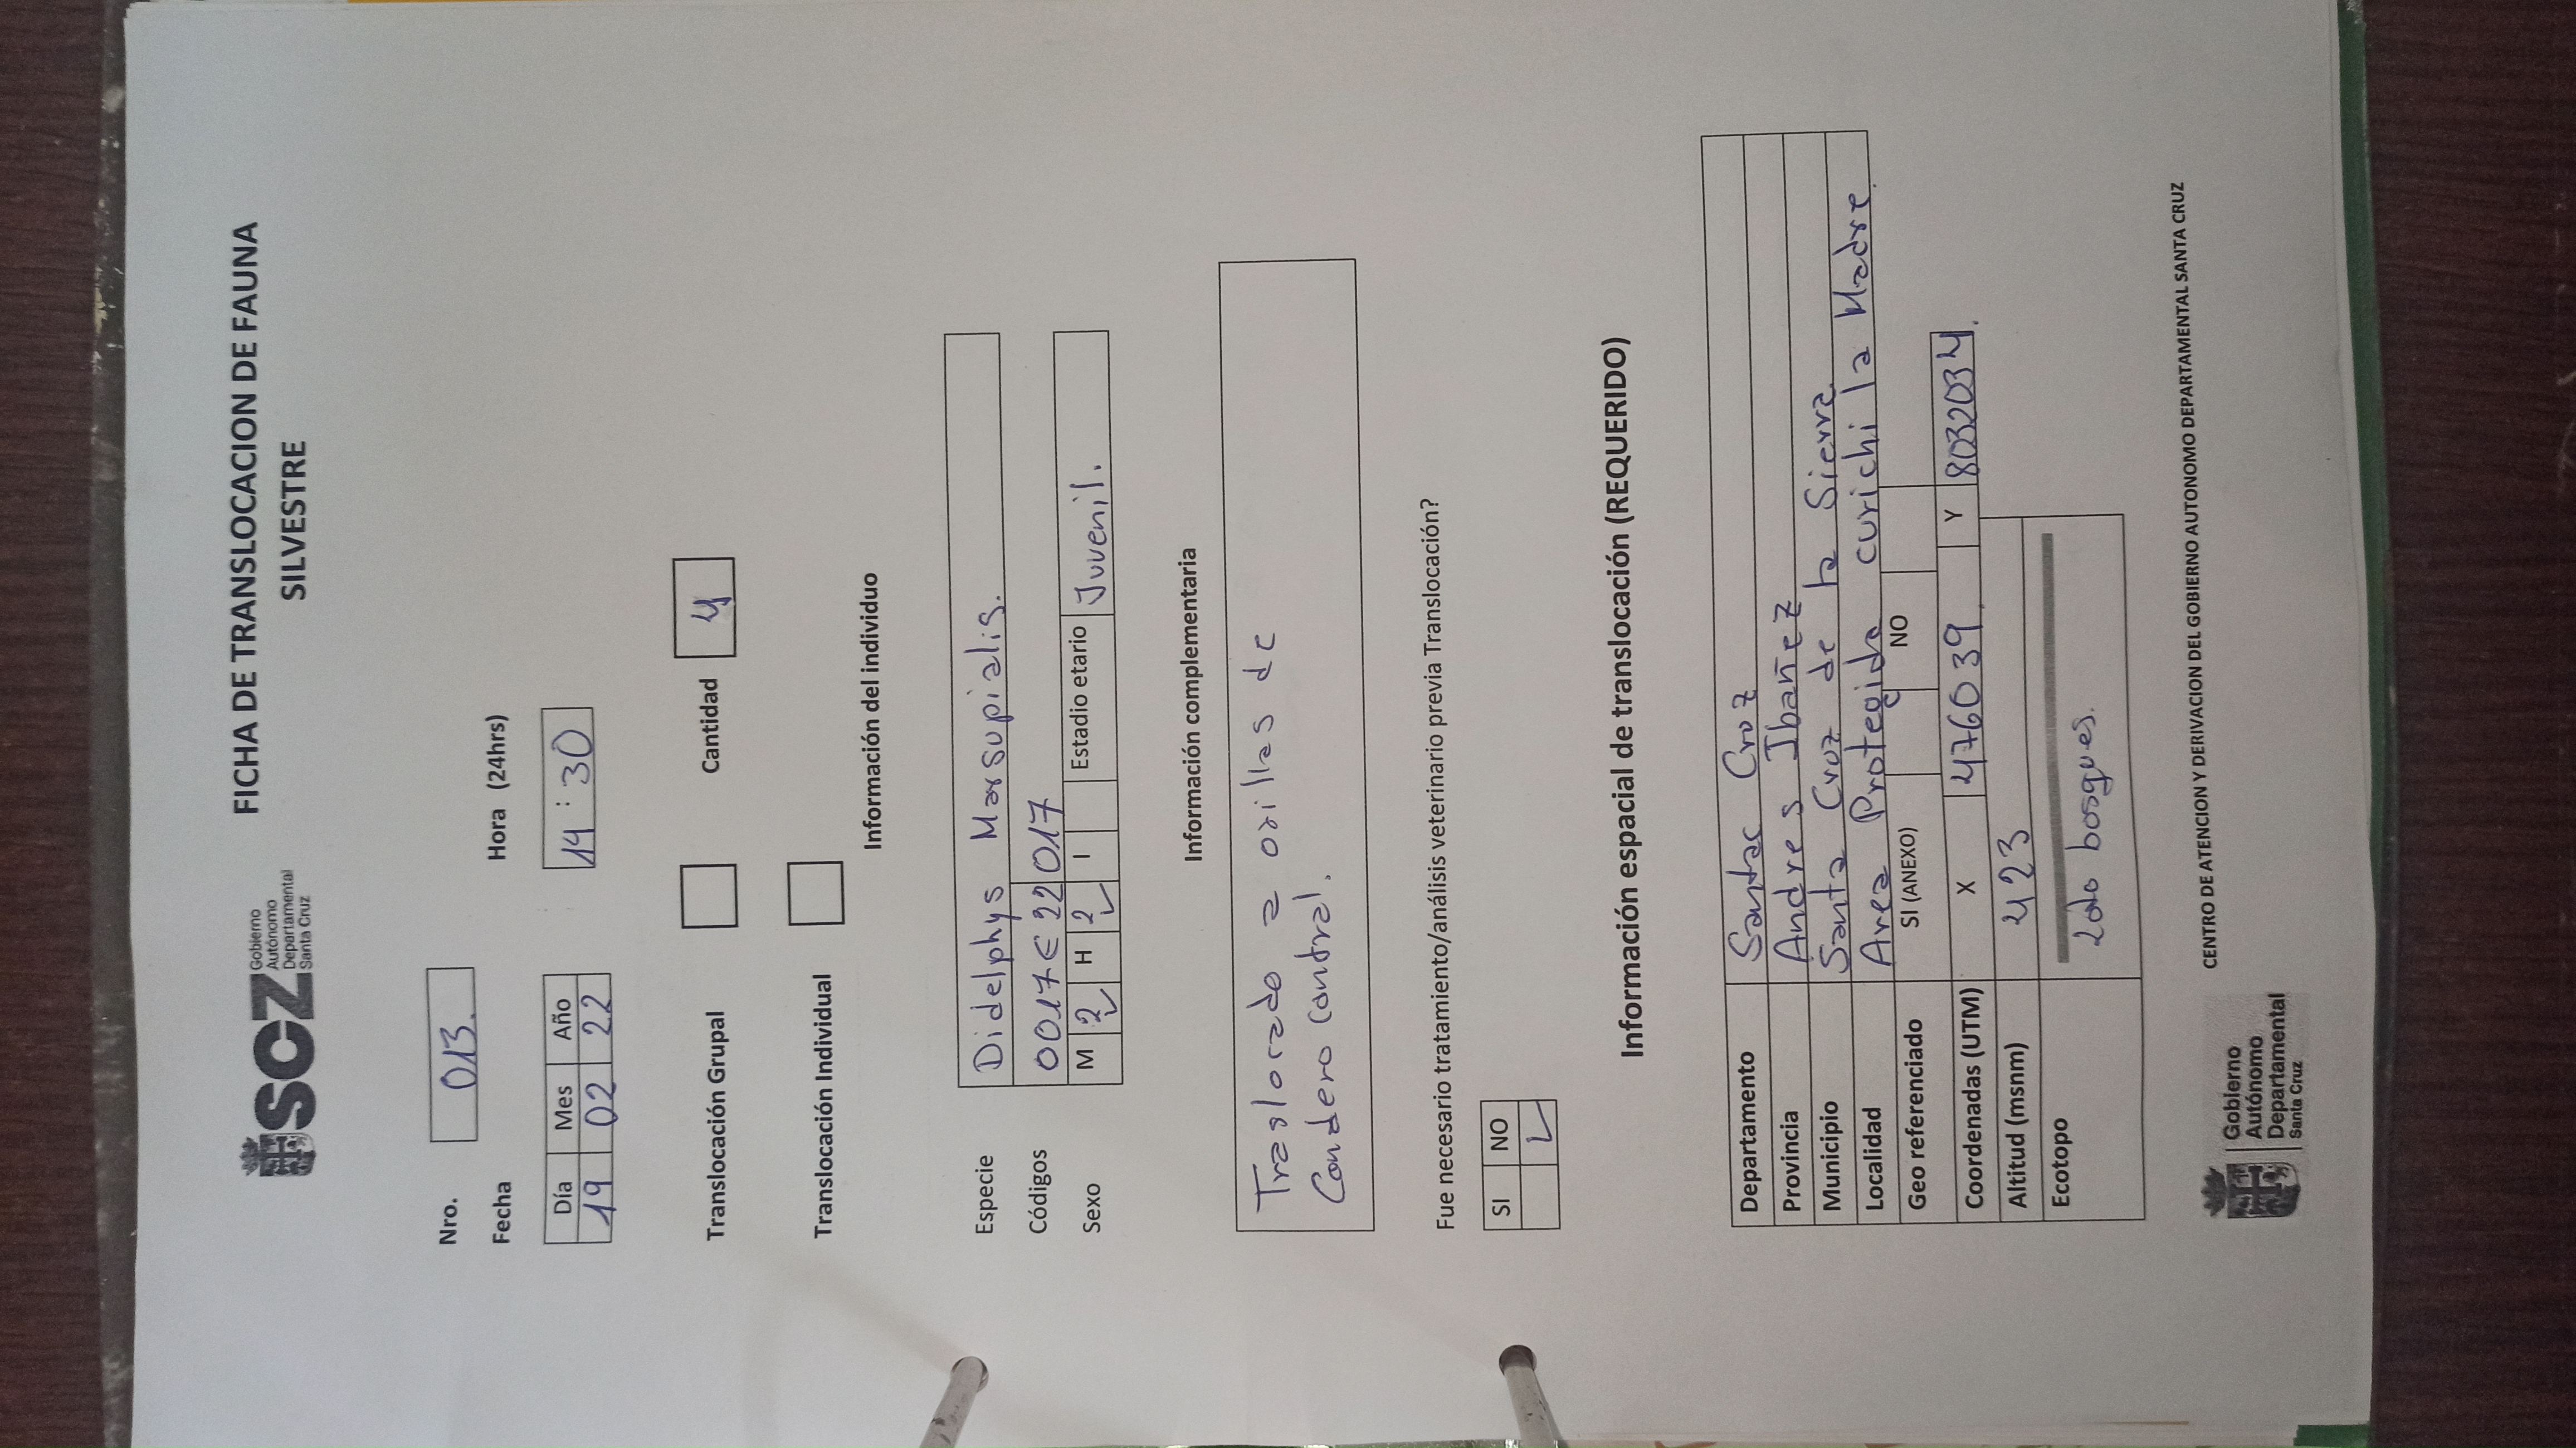 SCZ Gobierno
Autónomo
Departamental
Santa Cruz
FICHA DE TRANSLOCACION DE FAUNA
SILVESTRE
Nro. 013.
Fecha Hora (24hrs)
Día Mes Año
19 02 22 14 : 30
Translocación Grupal Cantidad 4
Translocación Individual
Información del individuo
Especie Didelphys Marsupialis.
Códigos 0017 E 22 017
Sexo M 2 H 2 I Estadio etario Juvenil.
Información complementaria
Traslocado a orillas de
Condero central.
Fue necesario tratamiento/análisis veterinario previa Translocación?
SI NO
Información espacial de translocación (REQUERIDO)
Departamento Santa Cruz
Provincia Andres Ibañez
Municipio Santa Cruz de la Sierra
Localidad Area Protegida curichi la Madre
Geo referenciado SI (ANEXO) NO
Coordenadas (UTM) X 476039 Y 8032034.
Altitud (msnm) 423
Ecotopo
bosques.
CENTRO DE ATENCION Y DERIVACION DEL GOBIERNO AUTONOMO DEPARTAMENTAL SANTA CRUZ
Gobierno
Autónomo
Departamental
Santa Cruz